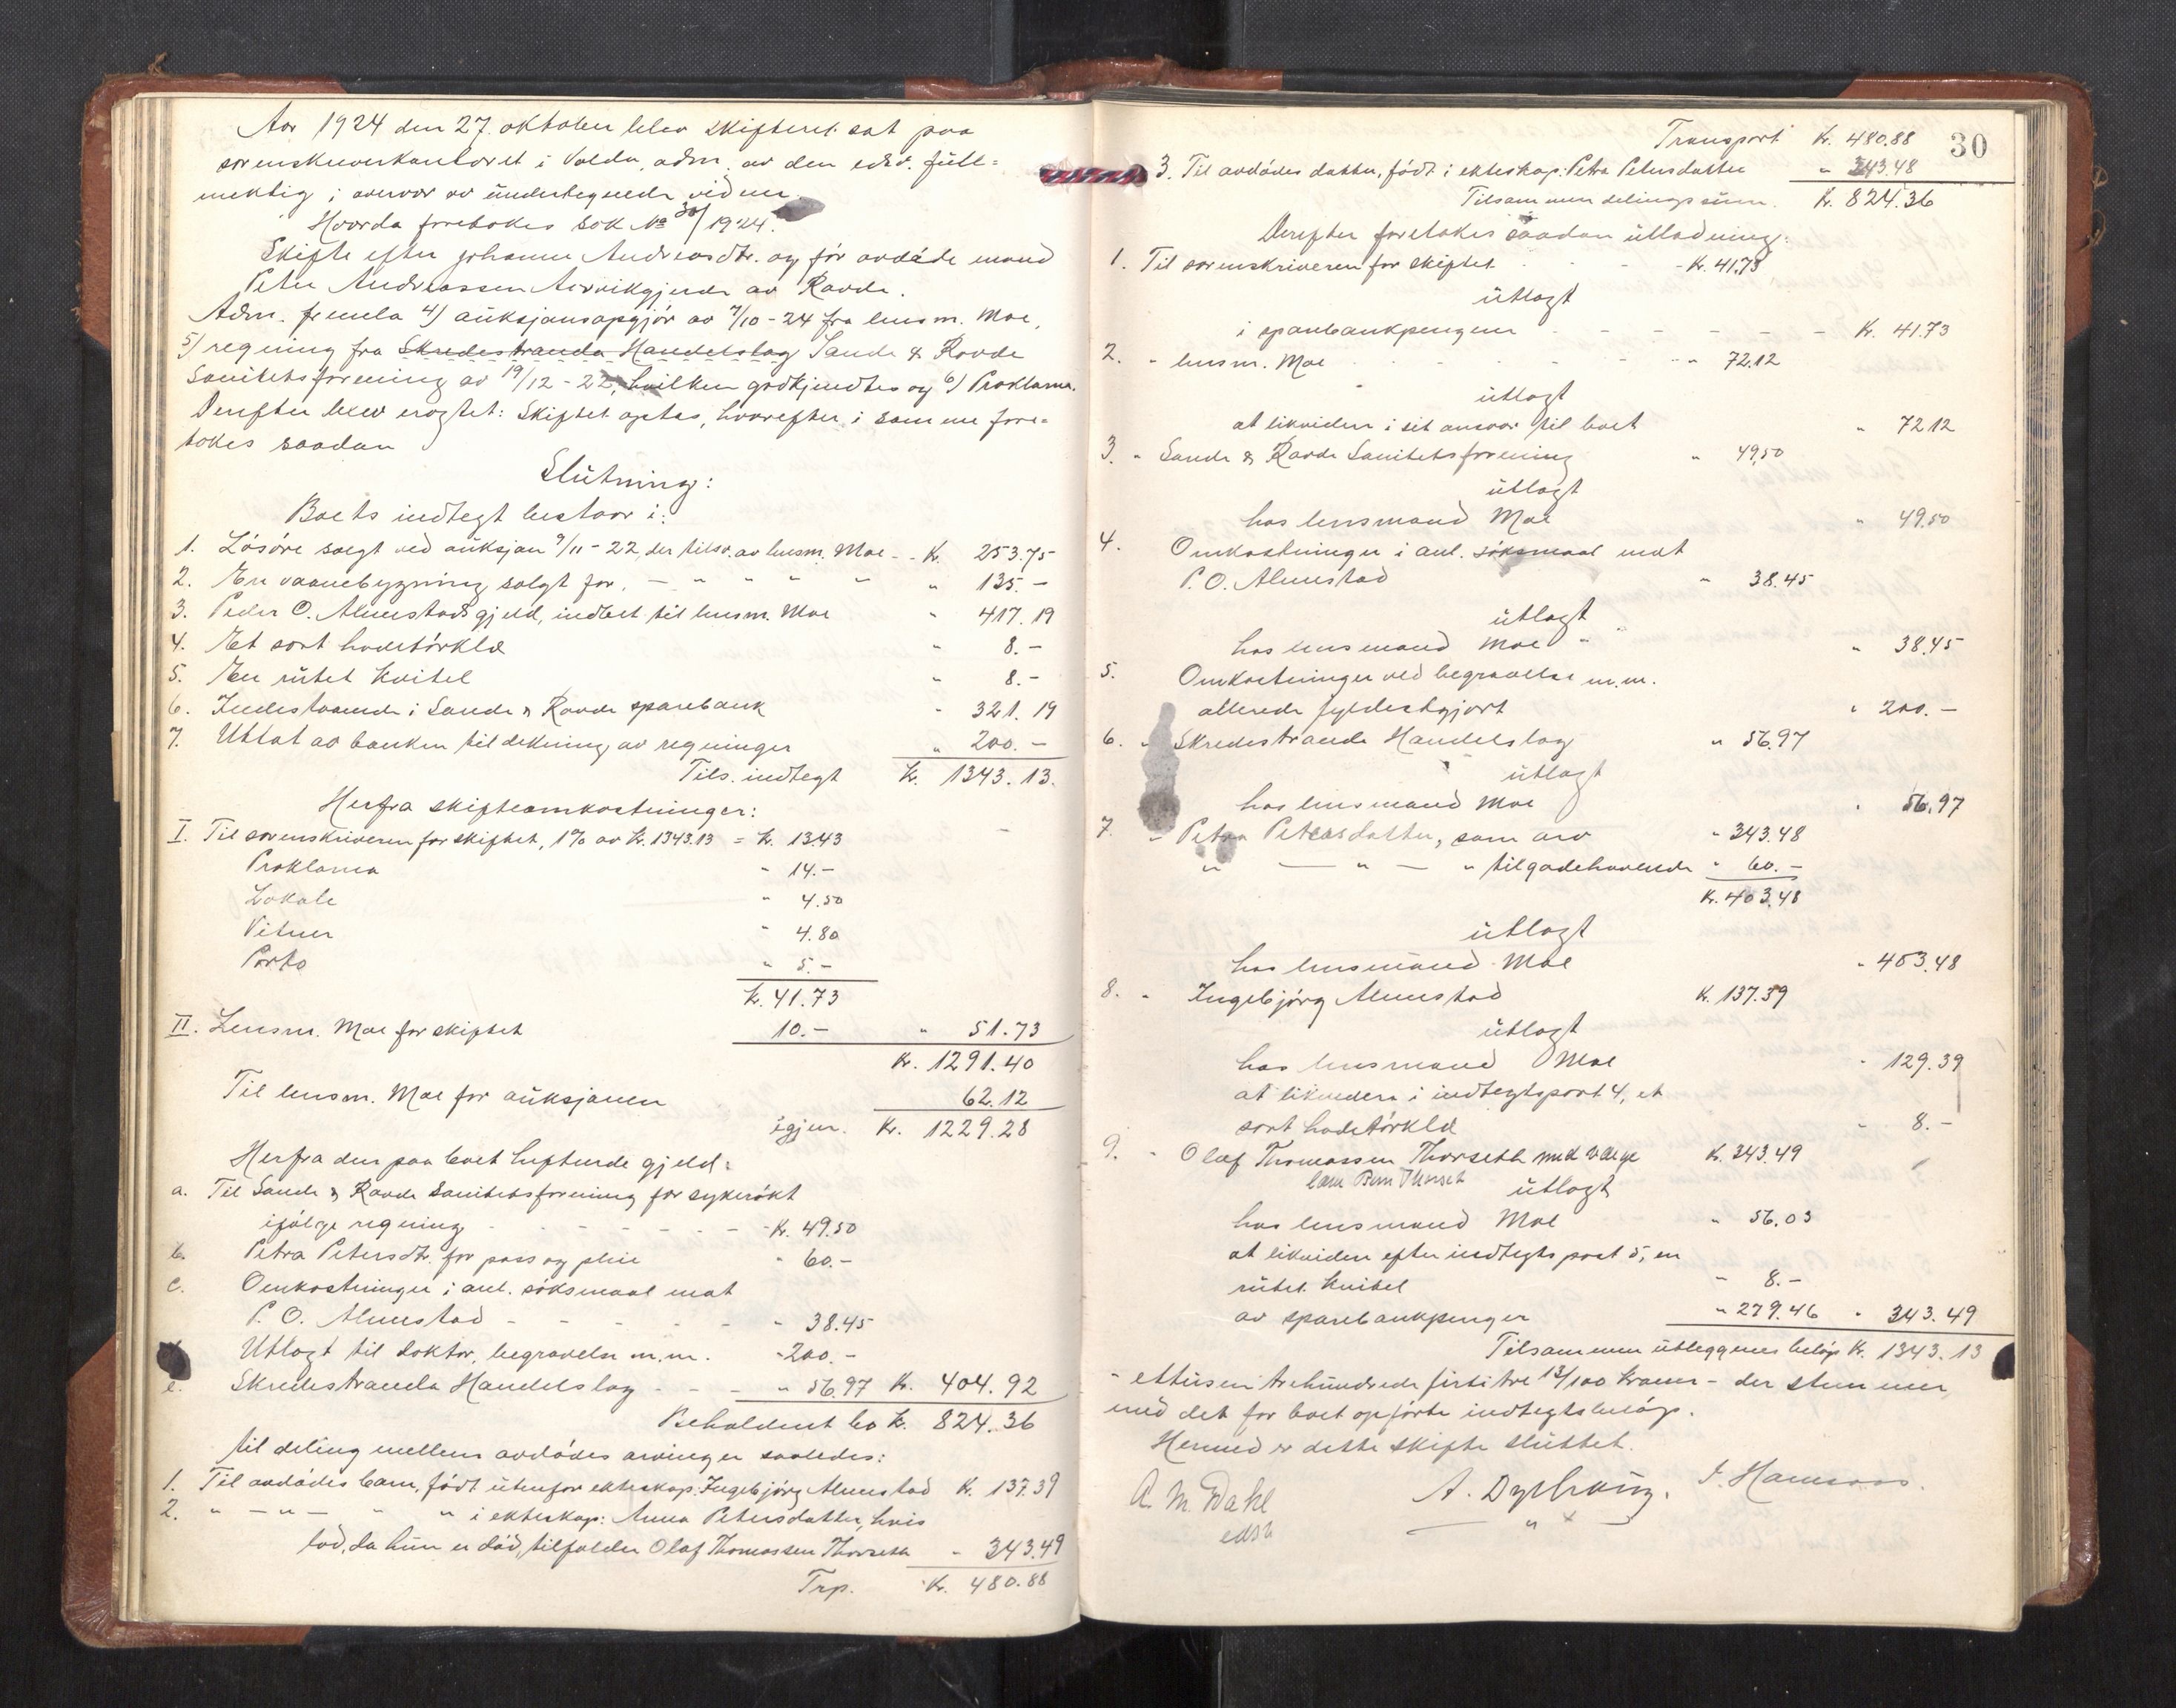 Aar 1924 den 27. oktober blev skifteret sat paa
sorenskriverkontoret i Volda, adm. av den edsv. full=
mektig i overvær av undertegnede vidner.
Hvorda foretokes sak No 30/1924.
Skifte efter Johanne Andreasdtr. og før avdøde mand
Peter Andreassen Aarvikgjerde av Rovde.
Adm. fremla 4) auksjonsopgjør av 7/10-24 fra lensm. Moe,
5) regning fra Skredestranda Handelslag Sande & Rovde
Sanitetsforening av 19/12-22, hvilken godkjendtes og 6) Proklama.
Derefter blev avgjort: Skiftet optas, hvorefter i samme fore=
tokes saadan
Slutning:
Boets indtegt bestaar i:
1. Løsøre solgt ved auksjon 9/11-22, der tilsv. av lensm. Moe - - Kr. 253.75
2. En vaanebygning solgt for, — " " " " " 135.-
3. Peder O. Almestads gjeld, indbet. til lensm. Moe " 417.19
4. Et sort hodetørklæ " 8.-
5. En rutet kvitel " 8.-
6. Indestaaende i Sande & Rovde sparebank " 321.19
7. Uttat av banken til dekning av regninger " 200.-
Tils. indtegt Kr. 1343.13.
Herfra skifteomkostninger:
I. Til sorenskriveren for skiftet, 1% av Kr. 1343.13 = Kr. 13.43
Proklama " 14.-
Lokale " 4.50
Vitner " 4.80
Porto " 5.-
Kr. 41.73
II. Lensm. Moe for skiftet 10.- " 51.73
Kr. 1291.40
Til lensm. Moe for auksjonen 62.12
igjen. Kr. 1229.28
Herfra den paa boet heftende gjeld:
a. Til Sande & Rovde Sanitetsforening for sykerøkt
ifølge regning - - - - - - - Kr. 49.50
b. Petra Petersdtr. for pass og pleie " 60.-
c. Omkostninger i anl. søksmaal mot
P. O. Almestad - - - - - " 38.45
Utlagt til doktor, begravelse m.m. - 200.-
e. Skredestranda Handelslag - - - " 56.97 Kr. 404.92
Beholdent bo Kr. 824.36
til deling mellem avdødes arvinger saaledes:
1. Til avdødes barn, født utenfor ekteskap: Ingebjørg Almestad Kr. 137.39
2. " — " — " " i ekteskap: Anna Petersdatter, hvis
lod, da hun er død, tilfalder Olaf Thomassen Thorseth " 343.49
Trp. Kr. 480.88
30
Transport Kr. 480.88
3. Til avdødes datter, født i ekteskap: Petra Petersdatter " 343.48
Tilsammen delingssum. Kr. 824.36
Derefter foretokes saadan utlodning:
1. Til sorenskriveren for skiftet - - - Kr. 41.73
utlagt
i sparebankpengene - - - - - - Kr. 41.73
2. " lensm. Moe - - - - - " 72.12
utlagt
at likvidere i sit ansvar til boet " 72.12
3. " Sande & Rovde Sanitetsforening " 49.50
utlagt
hos lensmand Moe " 49.50
4. Omkostninger i anl. søksmaal mot
P. O. Almestad " 38.45
utlagt
hos lensmand Moe " " 38.45
5. Omkostninger ved begravelse m.m.
allerede fyldestgjort " 200.-
6. " Skredestranda Handelslag " 56.97
utlagt
hos lensmand Moe " 56.97
7. " Petra Petersdatter, som arv " 343.48
" — " — " tilgodehavende " 60.-
Kr. 403.48
utlagt
hos lensmand Moe " 403.48
8. " Ingebjørg Almestad Kr. 137.39
utlagt
hos lensmand Moe " 129.39
at likvidere i indtegtspost 4, et
sort hodetørklæ " 8.-
9. " Olaf Thomassen Thorseth med værge Kr. 343.49
utlagt
hos lensmand Moe " 56.03
at likvidere efter indtegtspost 5, en
rutet kvitel " 8.-
av sparebankpenger " 279.46 " 343.49
Tilsammen utleggenes beløp Kr. 1343.13
- ettusen trehundrede førti tre 13/100 kroner - der stemmer
med det for boet opførte indtegtsbeløp.
Hermed er dette skifte sluttet.
A. M. Dahl A. Dyrhaug. J. Hansson.
edsv